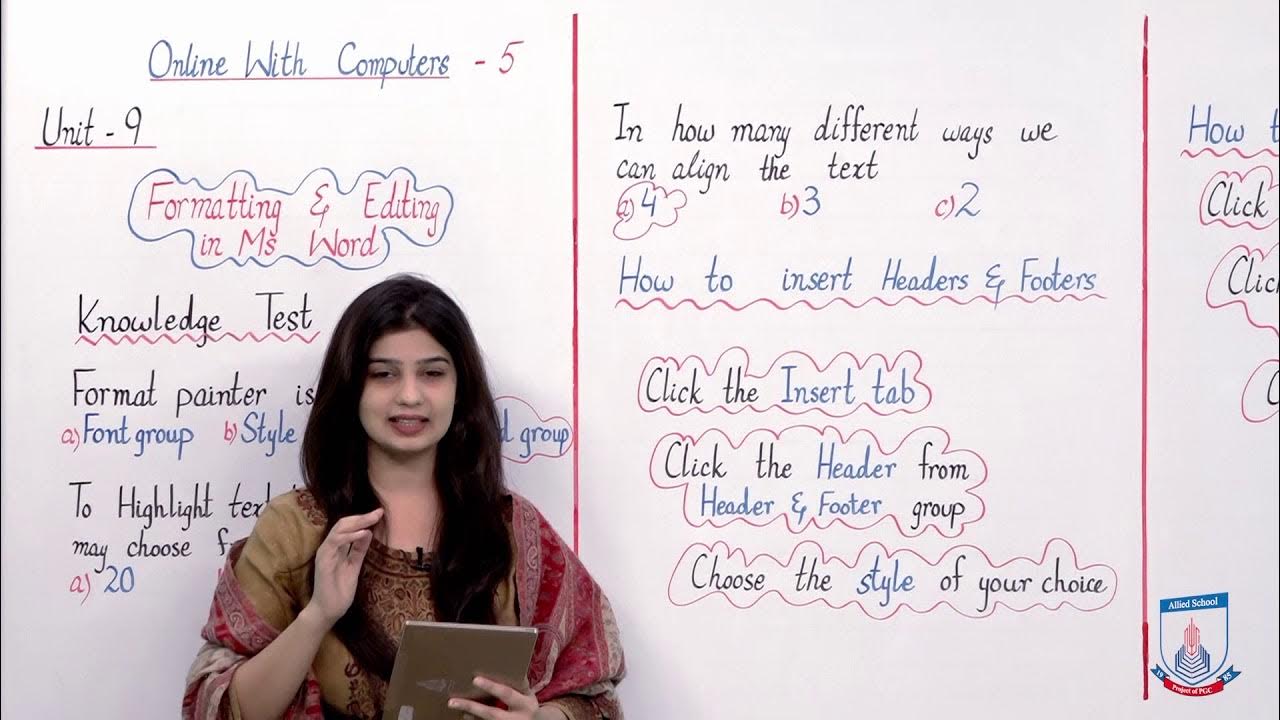 Online With Computers - 5
Unit - 9
Formatting & Editing
in Ms Word
Knowledge Test
Format painter is
a) Font group b) Style
group
To Highlight text
may choose
a) 20
In how many different ways we
can align the text
a) 4 b) 3 c) 2
How to insert Headers & Footers
Click the Insert tab
Click the Header from
Header & Footer group
Choose the style of your choice
How
Click
Click
Allied School
19 85
Project of PGC